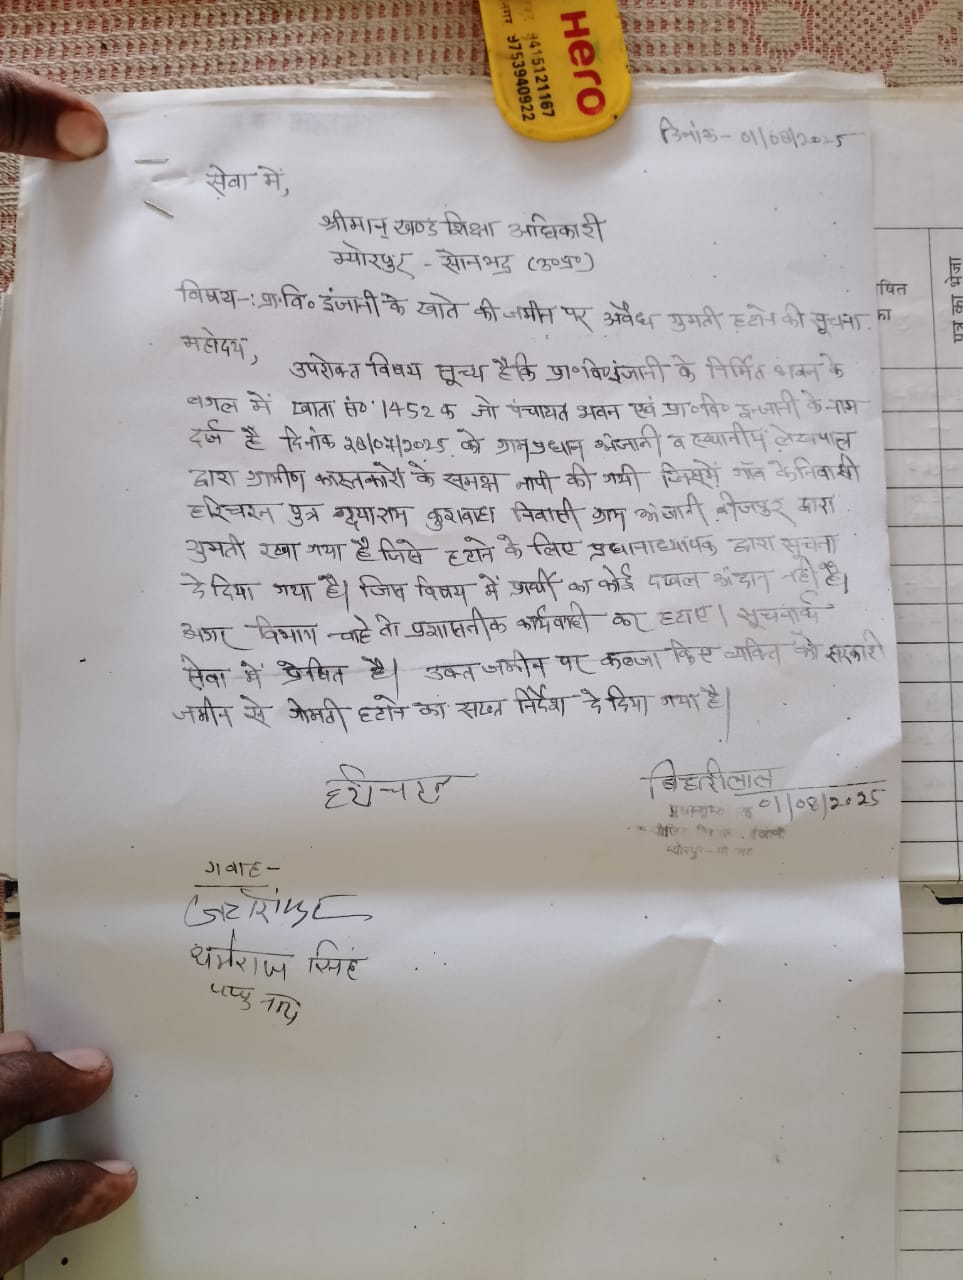 Hero
9415121167
9753940922
दिनांक - 01/08/2025
सेवा में,
श्रीमान् खण्ड शिक्षा अधिकारी
म्योरपुर - सोनभद्र (उ०प्र०)
विषय-: प्रा०वि० इंजानी के खाते की जमीन पर अवैध गुमती हटाने की सूचना.
महोदय,
उपरोक्त विषय सूच्य है कि प्रा०वि० इंजानी के निर्मित भवन के
बगल में खाता सं० 1452 क जो पंचायत भवन एवं प्रा०वि० इन्जानी के नाम
दर्ज है दिनांक 28/07/2025 को ग्राम प्रधान अंजानी व स्थानीय लेखपाल
द्वारा ग्रामीण कास्तकारो के समक्ष नापी की गयी जिसमें गाँव के निवासी
हरिचरन पुत्र कुशवाहा निवासी ग्राम अंजानी बीजपुर द्वारा
गुमती रखा गया है जिसे हटाने के लिए प्रधानाध्यापक द्वारा सूचना
दे दिया गया है। जिस विषय में प्रार्थी का कोई दखल अंदाज नही है।
अगर विभाग चाहे तो प्रशासनीक कार्यवाही कर हटाए। सूचनार्थ
सेवा में प्रेषित है। उक्त जमीन पर कब्जा किए व्यक्ति को सरकारी
जमीन से गोमती हटाने का सख्त निर्देश दे दिया गया है।
हरीचरन
बिहारीलाल
01/08/2025
गवाह-
धर्मराज सिंह
पप्पु
षित
का